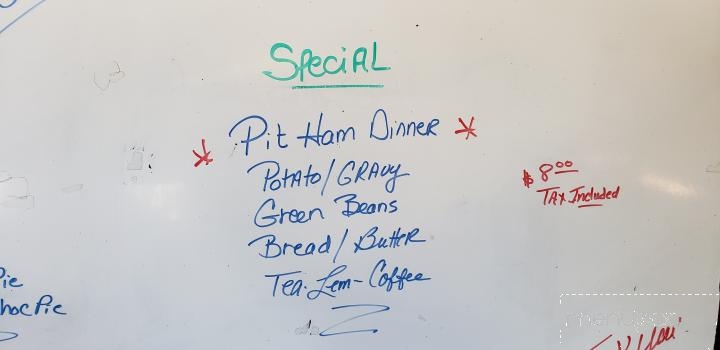 SpeciAL
* Pit Ham Dinner *
Potato/GRAvy
Green Beans
Bread/Butter
Tea-Lem-Coffee
$8.00
TAX Included
Pie
hoc Pie